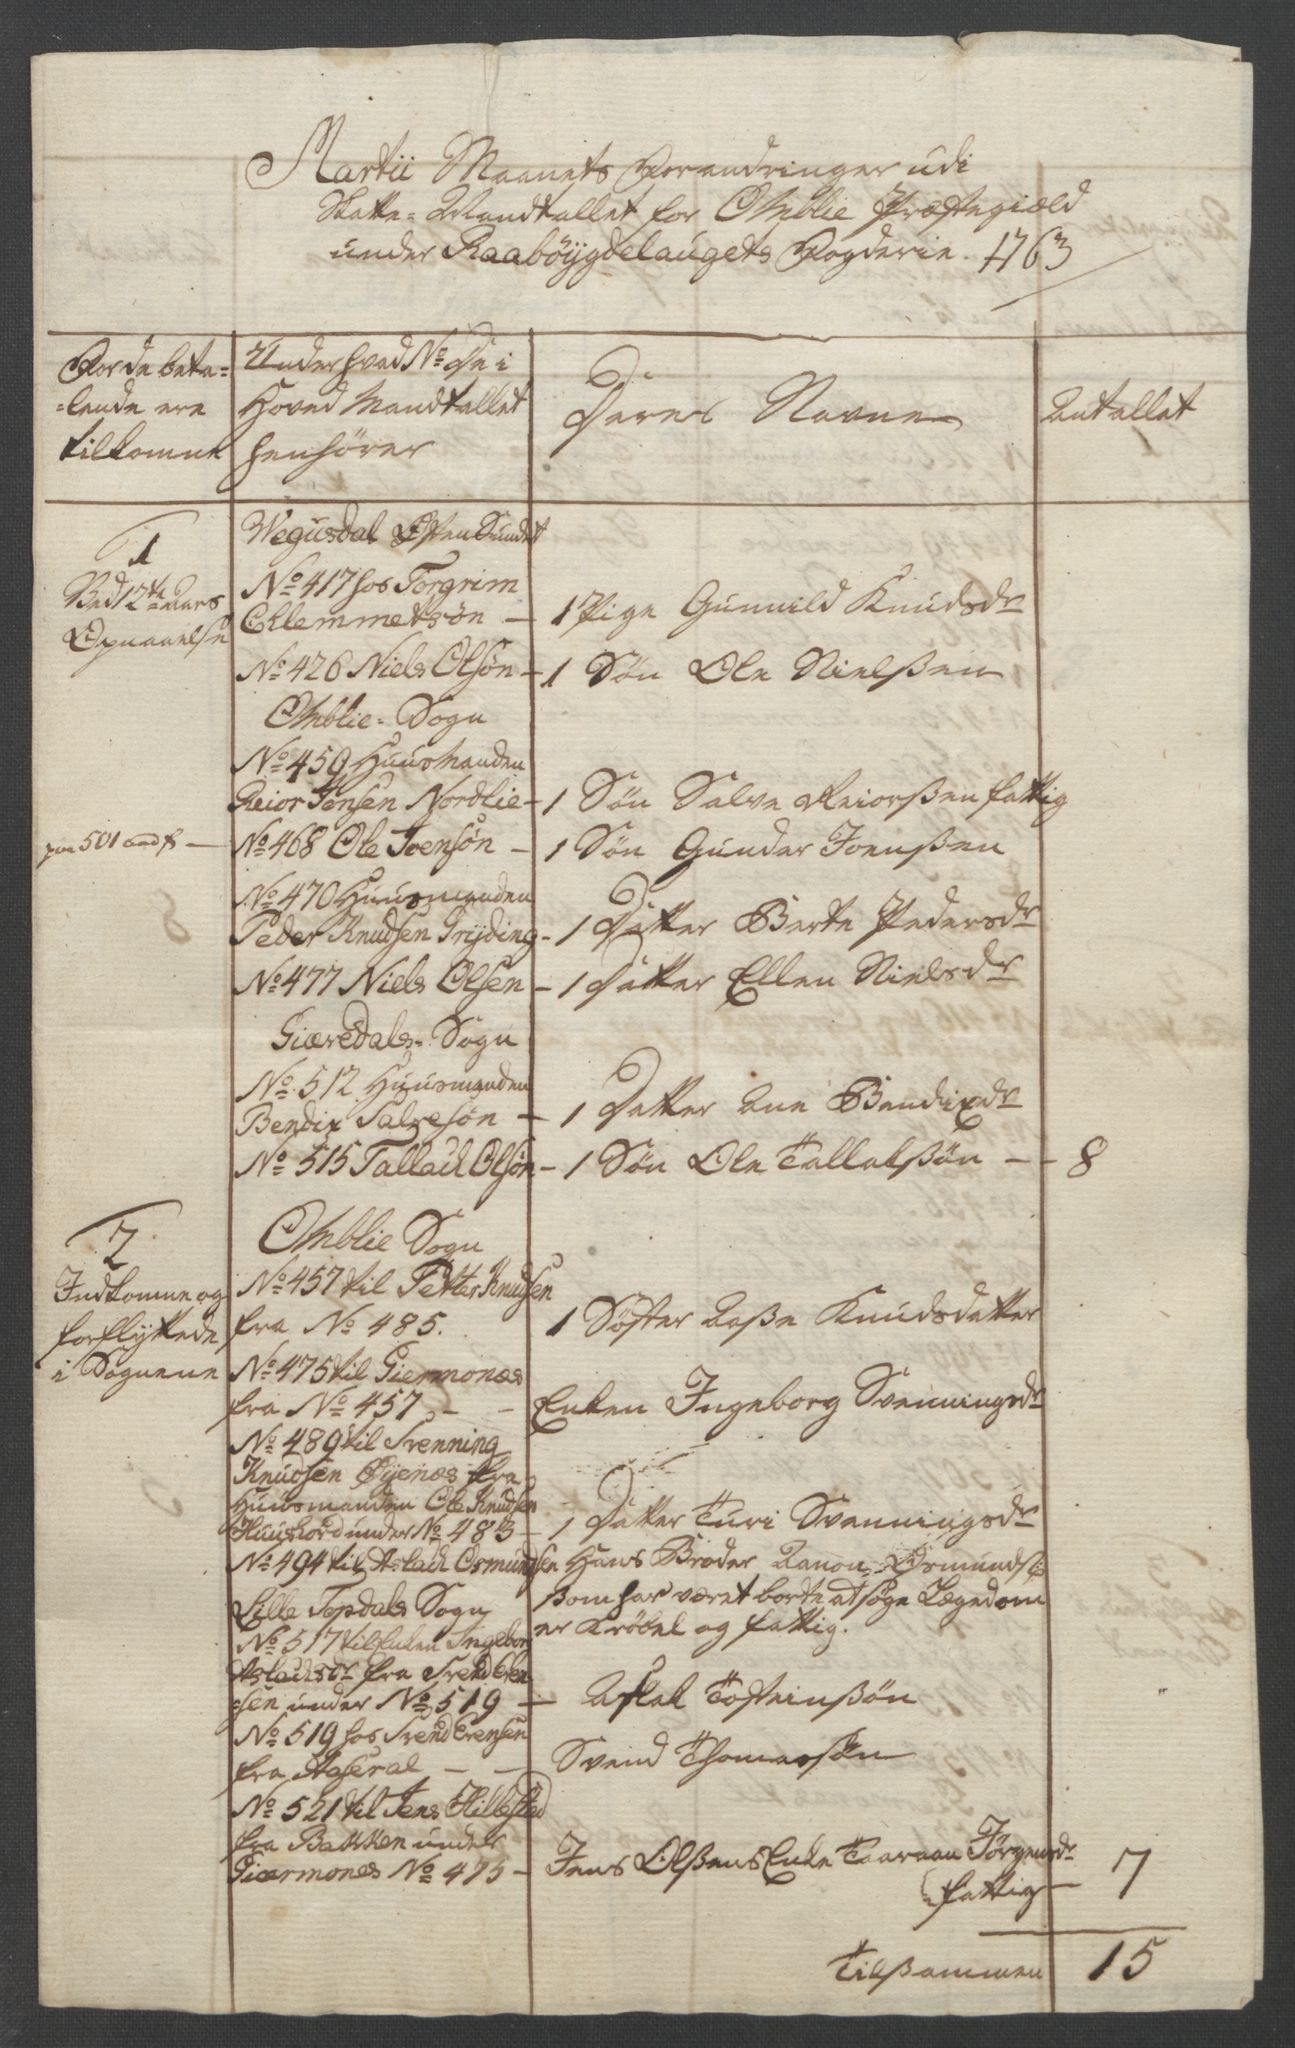 Martii Maanets Forandringer udi
Skatte-Mandtallet for Omblie Præstegield
under Raabøÿgdelaugets Fogderie. 1763
For de beta=
=lende ere
tilkomne
Under hvad No de i
Hoved Mandtallet
henhører
Deres Navne
Antallet
1
Ved 12te Aars
Opnaaelse
Wegusdal
No 417 hos Torgrim
Chlemmetsøn – 1 Pige Gunnild Knudsdr
No 426 Niels Olsøn – 1 Søn Ole Nielssen
Omblie-Sogn
No 459 Huusmanden
Reior Jensen Nordlie – 1 Søn Salve Reiorssen fattig
501 – No 468 Ole Joensøn – 1 Søn Gunder Joenssen
No 470 Huusmanden
Peder Knudsen Grÿding – 1 Datter Berte Pedersdr
No 477 Niels Olsen – 1 Datter Ellen Nielsdr
Giæredals-Sogn
No 512 Huusmanden
Bendix Salvesøn – 1 Datter Ane Bendixdr
No 515 Tallach Olsøn – 1 Søn Ole Tallakssøn – – 8
2
Indkomne og
forflyttede
i Sognene
Omblie Sogn
No 457 til Petter Knudsen
fra No 485. 1 Søster Aasse Knudsdatter
No 475 til Giermones
fra No 457 – – Enken Ingeborg Svenningsdr
No 489 til Svenning
Knudsen Øÿenæs fra
Huusmanden Ole Knudsen
under No 483 – 1 Datter Turi Svenningsdr
No 494 til Aslach Osmundsen Hans Broder Aanon Osmunds:
som har været borte at søge Lægedom
er Krøbel og fattig.
Lille Topdals Sogn
No 517 til Enken Ingebor
Aslachsdr fra Svend Even
=sen under No 519 – Aslak Tosteinssøn
No 519 hos Svend Evensen
fra Aaseral – – Svend Thomassøn
No 521 til Jens Hillestad
fra Bakken under
Giærmones No 475 – Jens Olssens Enke Taaraan Jørgensdr
fattig – 7
Tilsammen 15